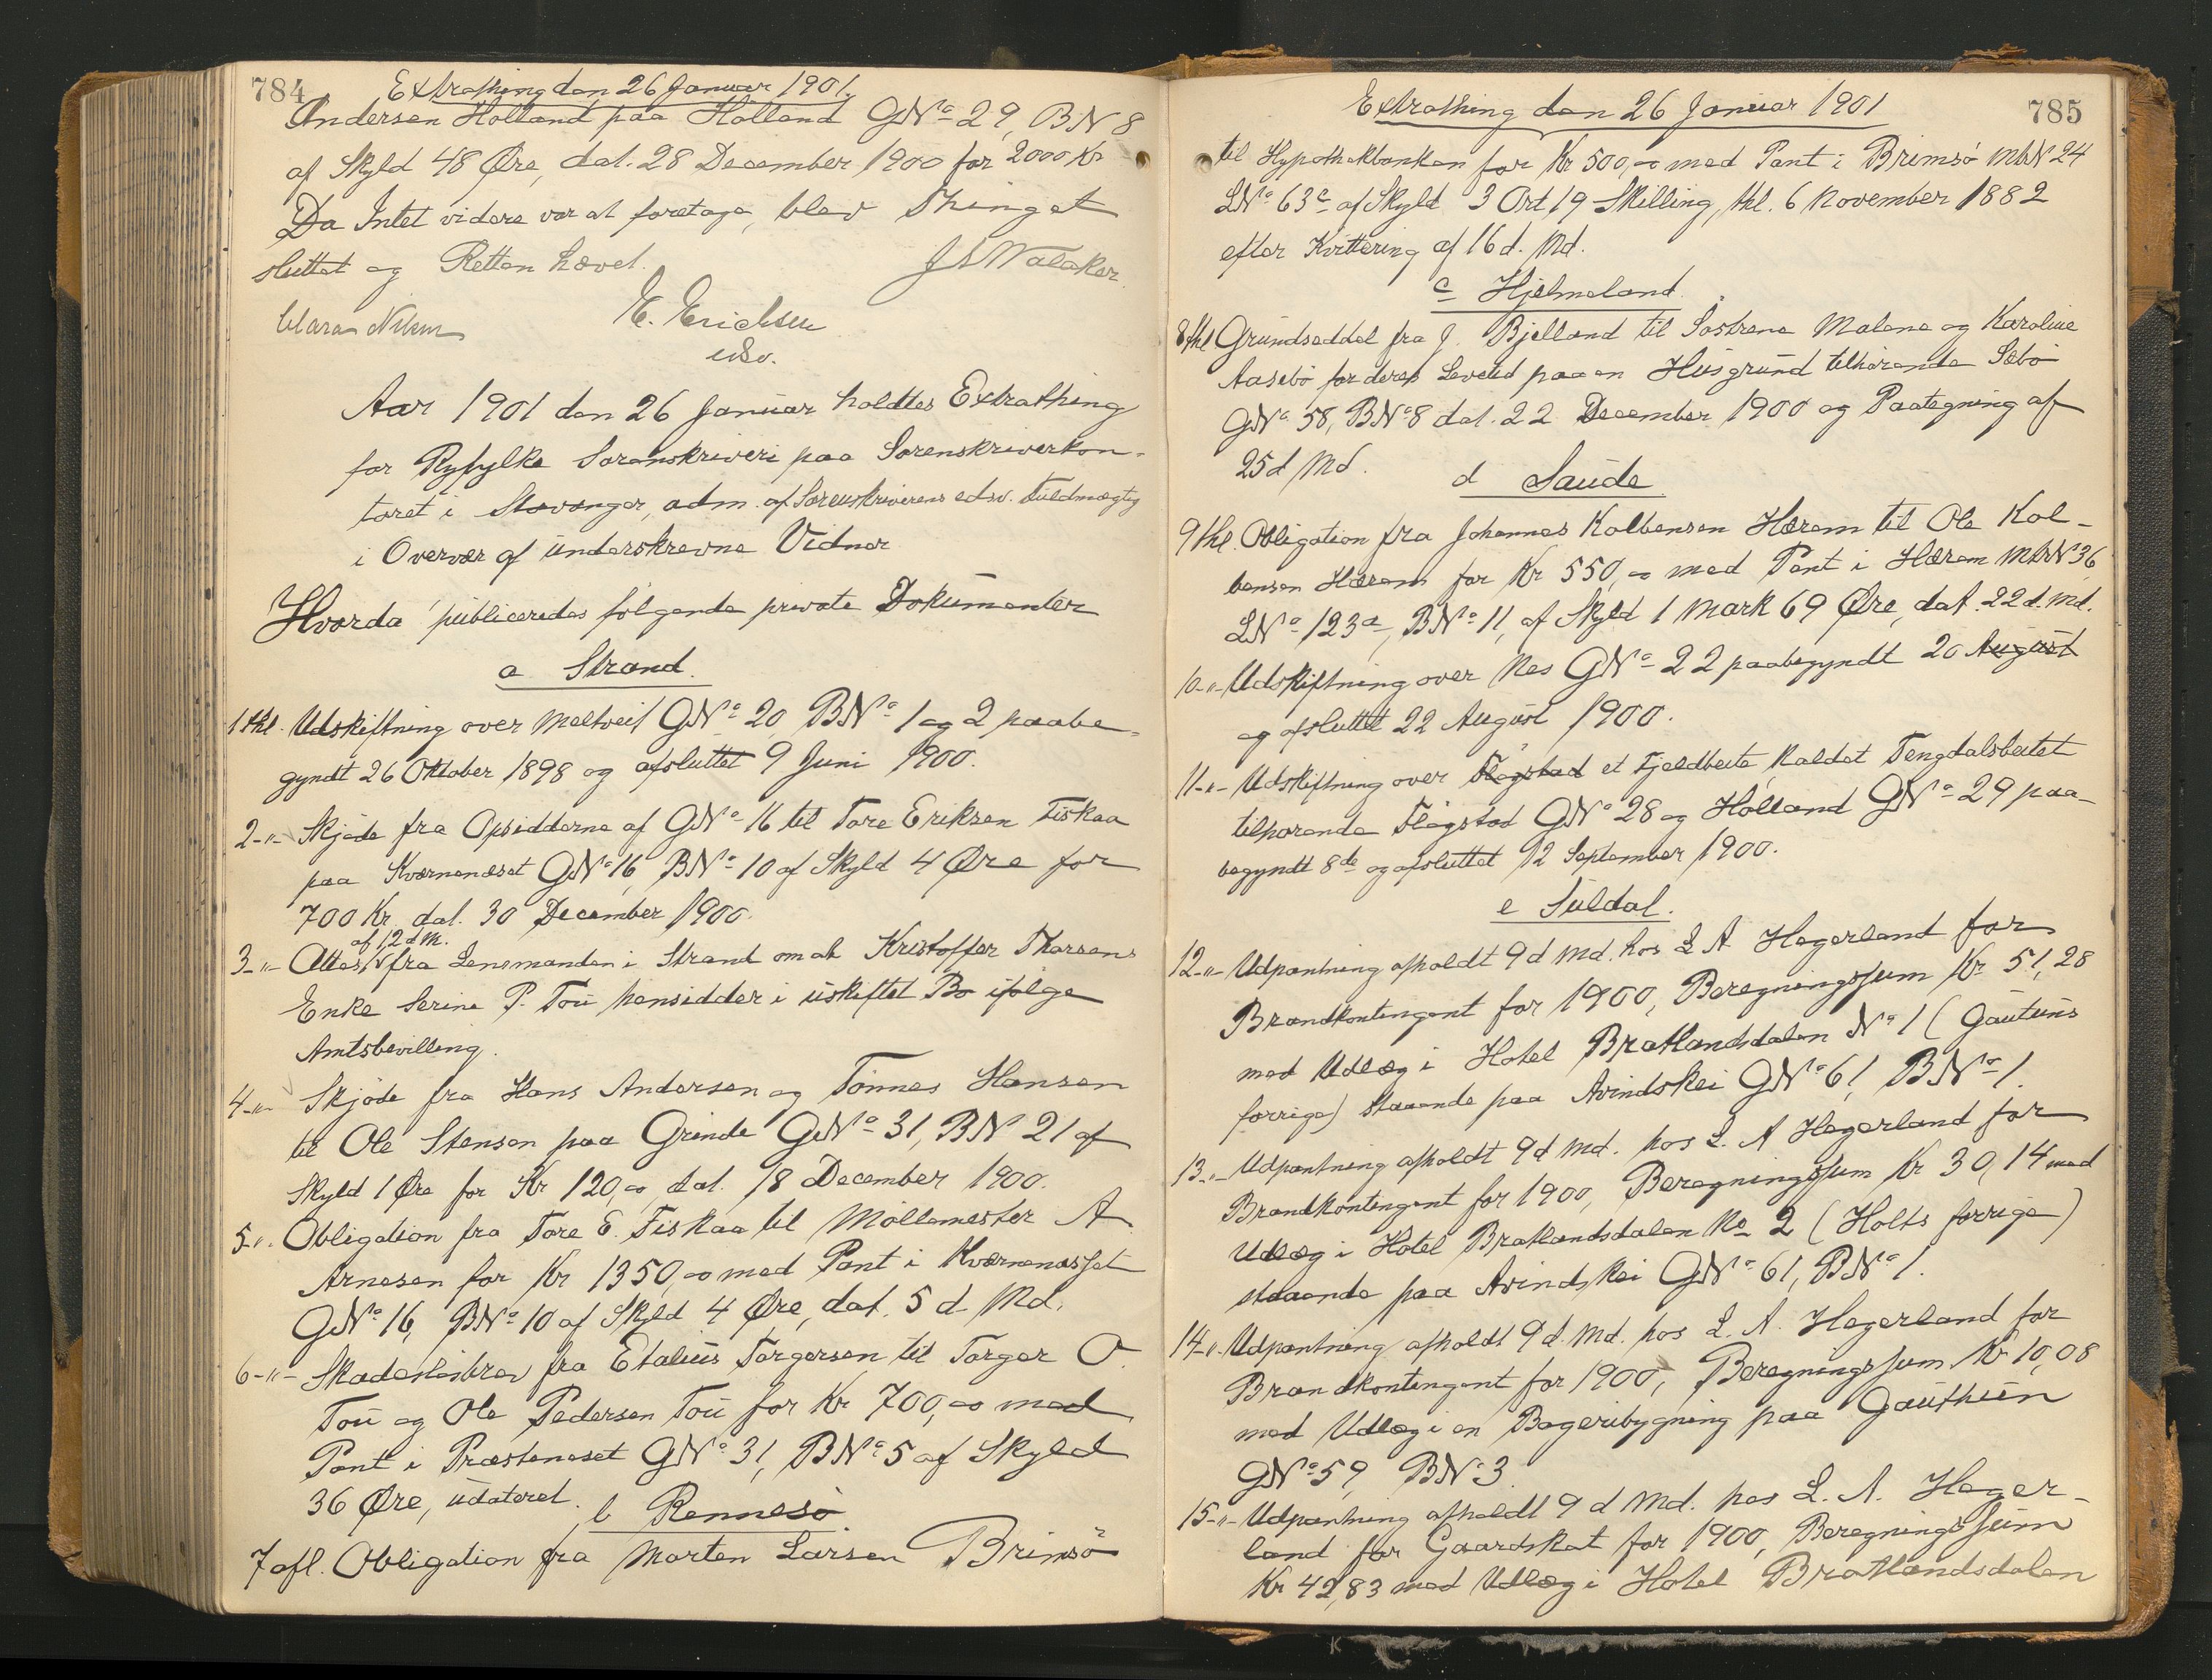 784
Extrathing den 26 Januar 1901.
Andersen Holland paa Holland GNo 29, BN 8
af Skyld 48 Øre, dat. 28 December 1900 for 2000 Kr
Da Intet videre var at foretage, blev Thinget
sluttet og Retten hævet.
Nilsen
E. Erichsen
edsv.
Aar 1901 den 26 Januar holdtes Extrathing
for Ryfylke Sorenskriveri paa Sorenskriverkon-
toret i Stavanger, adm. af Sorenskriverens edsv. Fuldmægtig
i Overvær af underskrevne Vidner
Hvorda publiceredes følgende private Dokumenter
a Strand.
1 thl. Udskiftning over Meltveit GNo 20 BNo 1 og 2 paabe-
gyndt 26 Oktober 1898 og afsluttet 9 Juni 1900.
2-"- Skjøde fra Opsidderne af GNo 16 til Tore Eriksen Fiskaa
paa Kværnenæset GNo 16, BNo 10 af Skyld 4 Øre for
700 Kr, dat. 30 December 1900.
af 12 d M.
3-"- Attest fra Lensmanden i Strand om at Kristoffer Thorsens
Enke Serine P. Tou hensidder i uskiftet Bo ifølge
Amtsbevilling.
4-"- Skjøde fra Hans Andersen og Tønnes Hansen
til Ole Stensen paa Grinde GNo 31, BN 21 af
Skyld 1 Øre for Kr 120,00, dat. 18 December 1900.
5-"- Obligation fra Tore E. Fiskaa til Møllemester A.
Arnesen for Kr 1350,00 med Pant i Kværnenæsset
GNo 16, BNo 10 af Skyld 4 Øre, dat. 5 d Md.
6-"- Skadesløsbrev fra Etalius Torgersen til Torger O.
Tou og Ole Pedersen Tou for Kr 700,00 med
Pant i Præsteneset GNo 31, BNo 5 af Skyld
36 Øre, udateret.
b Rennesø
7 afl. Obligation fra Morten Larsen Brimsø
785
Extrathing den 26 Januar 1901
til Hypothekbanken for Kr 500,00 med Pant i Brimsø MtrN 24
LNo 63c af Skyld 3 Ort 19 Skilling, thl. 6 November 1882
efter Kvittering af 16 d. Md.
c Hjelmeland.
8 thl Grundseddel fra J. Bjelland til Søstrene Malene og Karoline
Aasebø for deres Levetid paa en Husgrund tilhørende Sebø
GNo 58, BNo 8 dat. 22 December 1900 og Paategning af
25 d Md.
d Saude
9 thl. Obligation fra Johannes Kolbensen Hærem til Ole Kol-
bensen Hærem for Kr 550,00 med Pant i Hærem MtrN 36
LNo 123a, BNo 11, af Skyld 1 Mark 69 Øre, dat. 22 d. Md.
10-"- Udskiftning over Nes GNo 22 paabegyndt 20 August
og afsluttet 22 August 1900.
11-"- Udskiftning over Fløgstad et Fjeldbeite kaldet Tengdalsbeitet
tilhørende Fløgstad GNo 28 og Holland GNo 29 paa-
begyndt 8de og afsluttet 12 September 1900.
e Suldal.
12-"- Udpantning afholdt 9 d Md. hos L A Hegerland for
Brandkontingent for 1900, Beregningssum Kr 51,28
med Udlæg i Hotel Bratlandsdalen No 1 (Gautuns
forrige) staaende paa Avindskei GNo 61, BNo 1.
13-"- Udpantning afholdt 9 d Md. hos L. A Hegerland for
Brandkontingent for 1900, Beregningssum Kr 30,14 med
Udlæg i Hotel Bratlandsdalen No 2 (Holts forrige)
staaende paa Avindskei GNo 61, BNo 1.
14-"- Udpantning afholdt 9 d. Md. hos L. A. Hegerland for
Brandkontingent for 1900, Beregningssum Kr 10,08
med Udlæg i en Bageribygning paa Gauthun
GNo 59, BN 3.
15-"- Udpantning afholdt 9 d Md. hos L. A. Heger-
land for Gaardskat for 1900, Beregningssum
Kr 42,83 med Udlæg i Hotel Bratlandsdalen